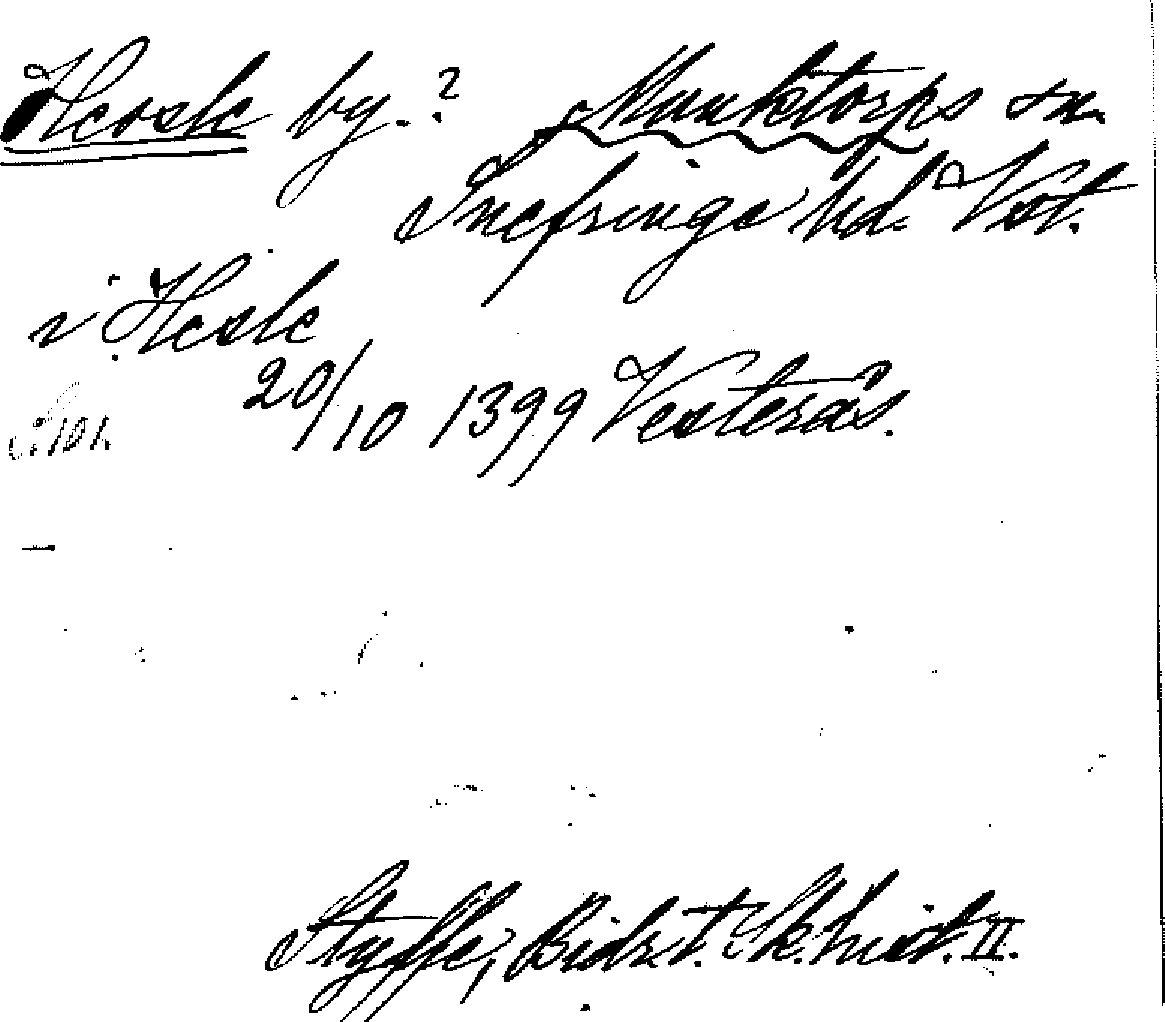 Heosle by.? Munktorps sn.
Snefringe hd. Vstm.
i Hesle
20/10 1399 Vesterås.
s. 101.
Styffe, Bidr. t. Sk. hist. II.